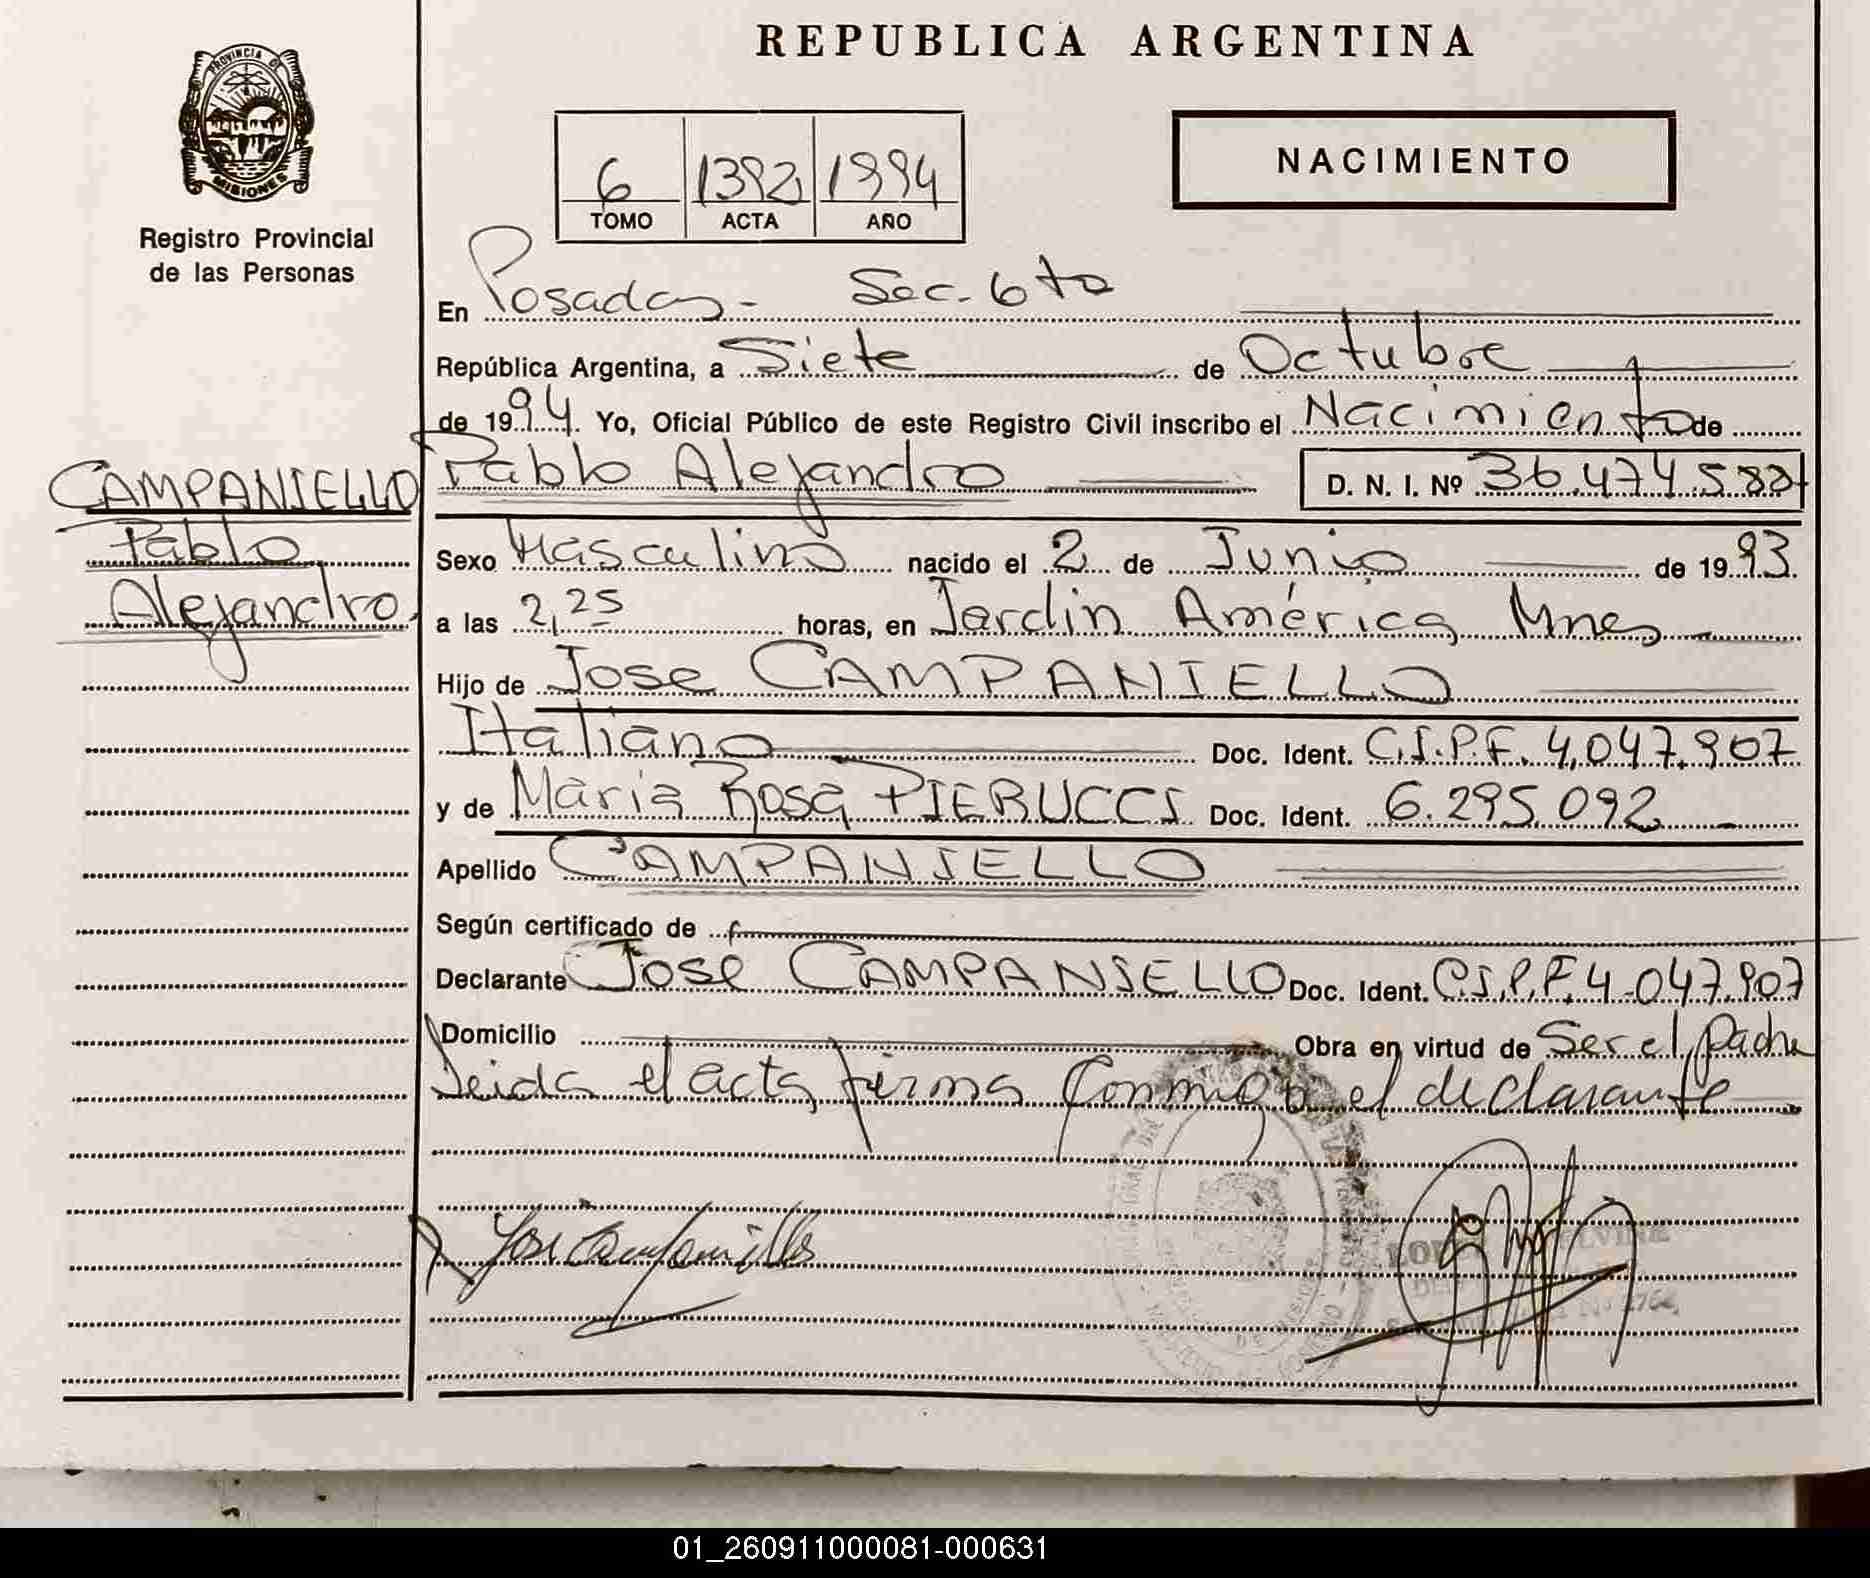 REPUBLICA ARGENTINA
PROVINCIA DE
MISIONES
Registro Provincial
de las Personas
6 1392 1994
TOMO ACTA AÑO
NACIMIENTO
En Posadas - Sec. 6ta
República Argentina, a Siete de Octubre
de 1994 Yo, Oficial Público de este Registro Civil inscribo el Nacimiento de
CAMPANIELLO
Pablo
Alejandro.
Pablo Alejandro D. N. I. Nº 36.474.582
Sexo Masculino nacido el 2 de Junio de 1993
a las 2,25 horas, en Jardin América Mnes
Hijo de Jose CAMPANIELLO
Italiano Doc. Ident. C.I.P.F. 4,047.907
y de Maria Rosa PIERUCCI Doc. Ident. 6.295.092
Apellido CAMPANIELLO
Según certificado de
Declarante Jose CAMPANIELLO Doc. Ident. C.I.P.F. 4.047.907
Domicilio Obra en virtud de Ser el padre
Leida el acta firma conmigo el declarante
Jose Campaniello
01_260911000081-000631